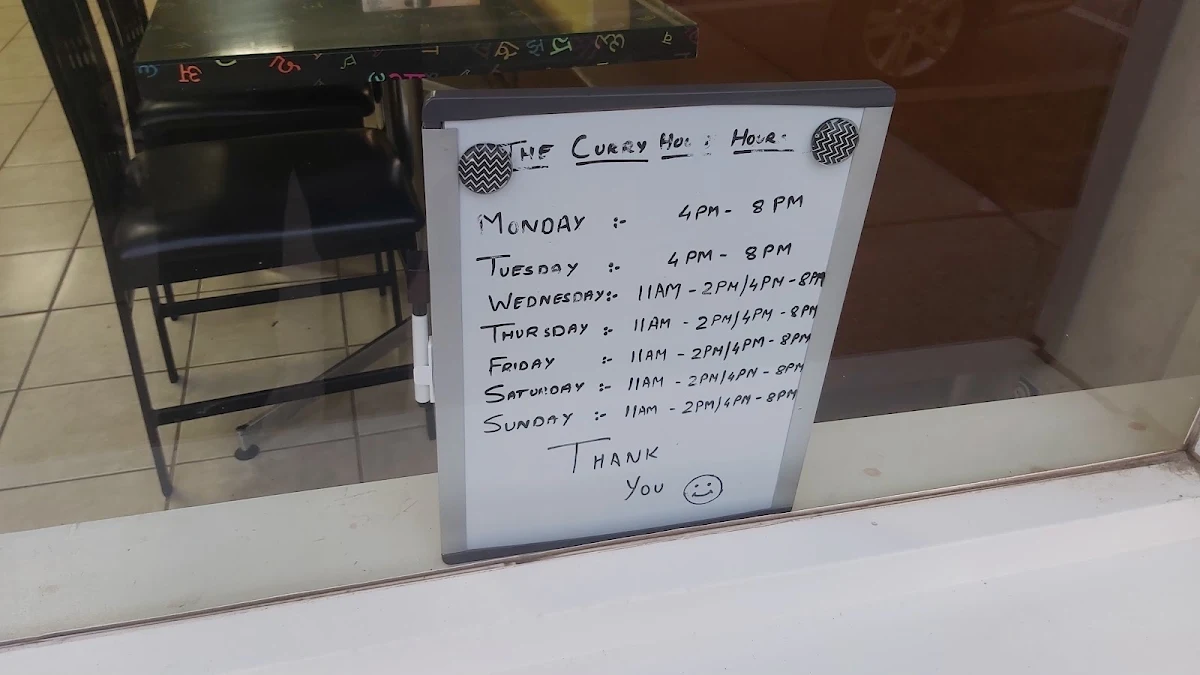 THE CURRY
MONDAY :- 4PM - 8PM
TUESDAY :- 4PM - 8PM
WEDNESDAY:- 11AM - 2PM/4PM - 8PM
THURSDAY :- 11AM - 2PM/4PM - 8PM
FRIDAY :- 11AM - 2PM/4PM - 8PM
SATURDAY :- 11AM - 2PM/4PM - 8PM
SUNDAY :- 11AM - 2PM/4PM - 8PM
THANK
YOU